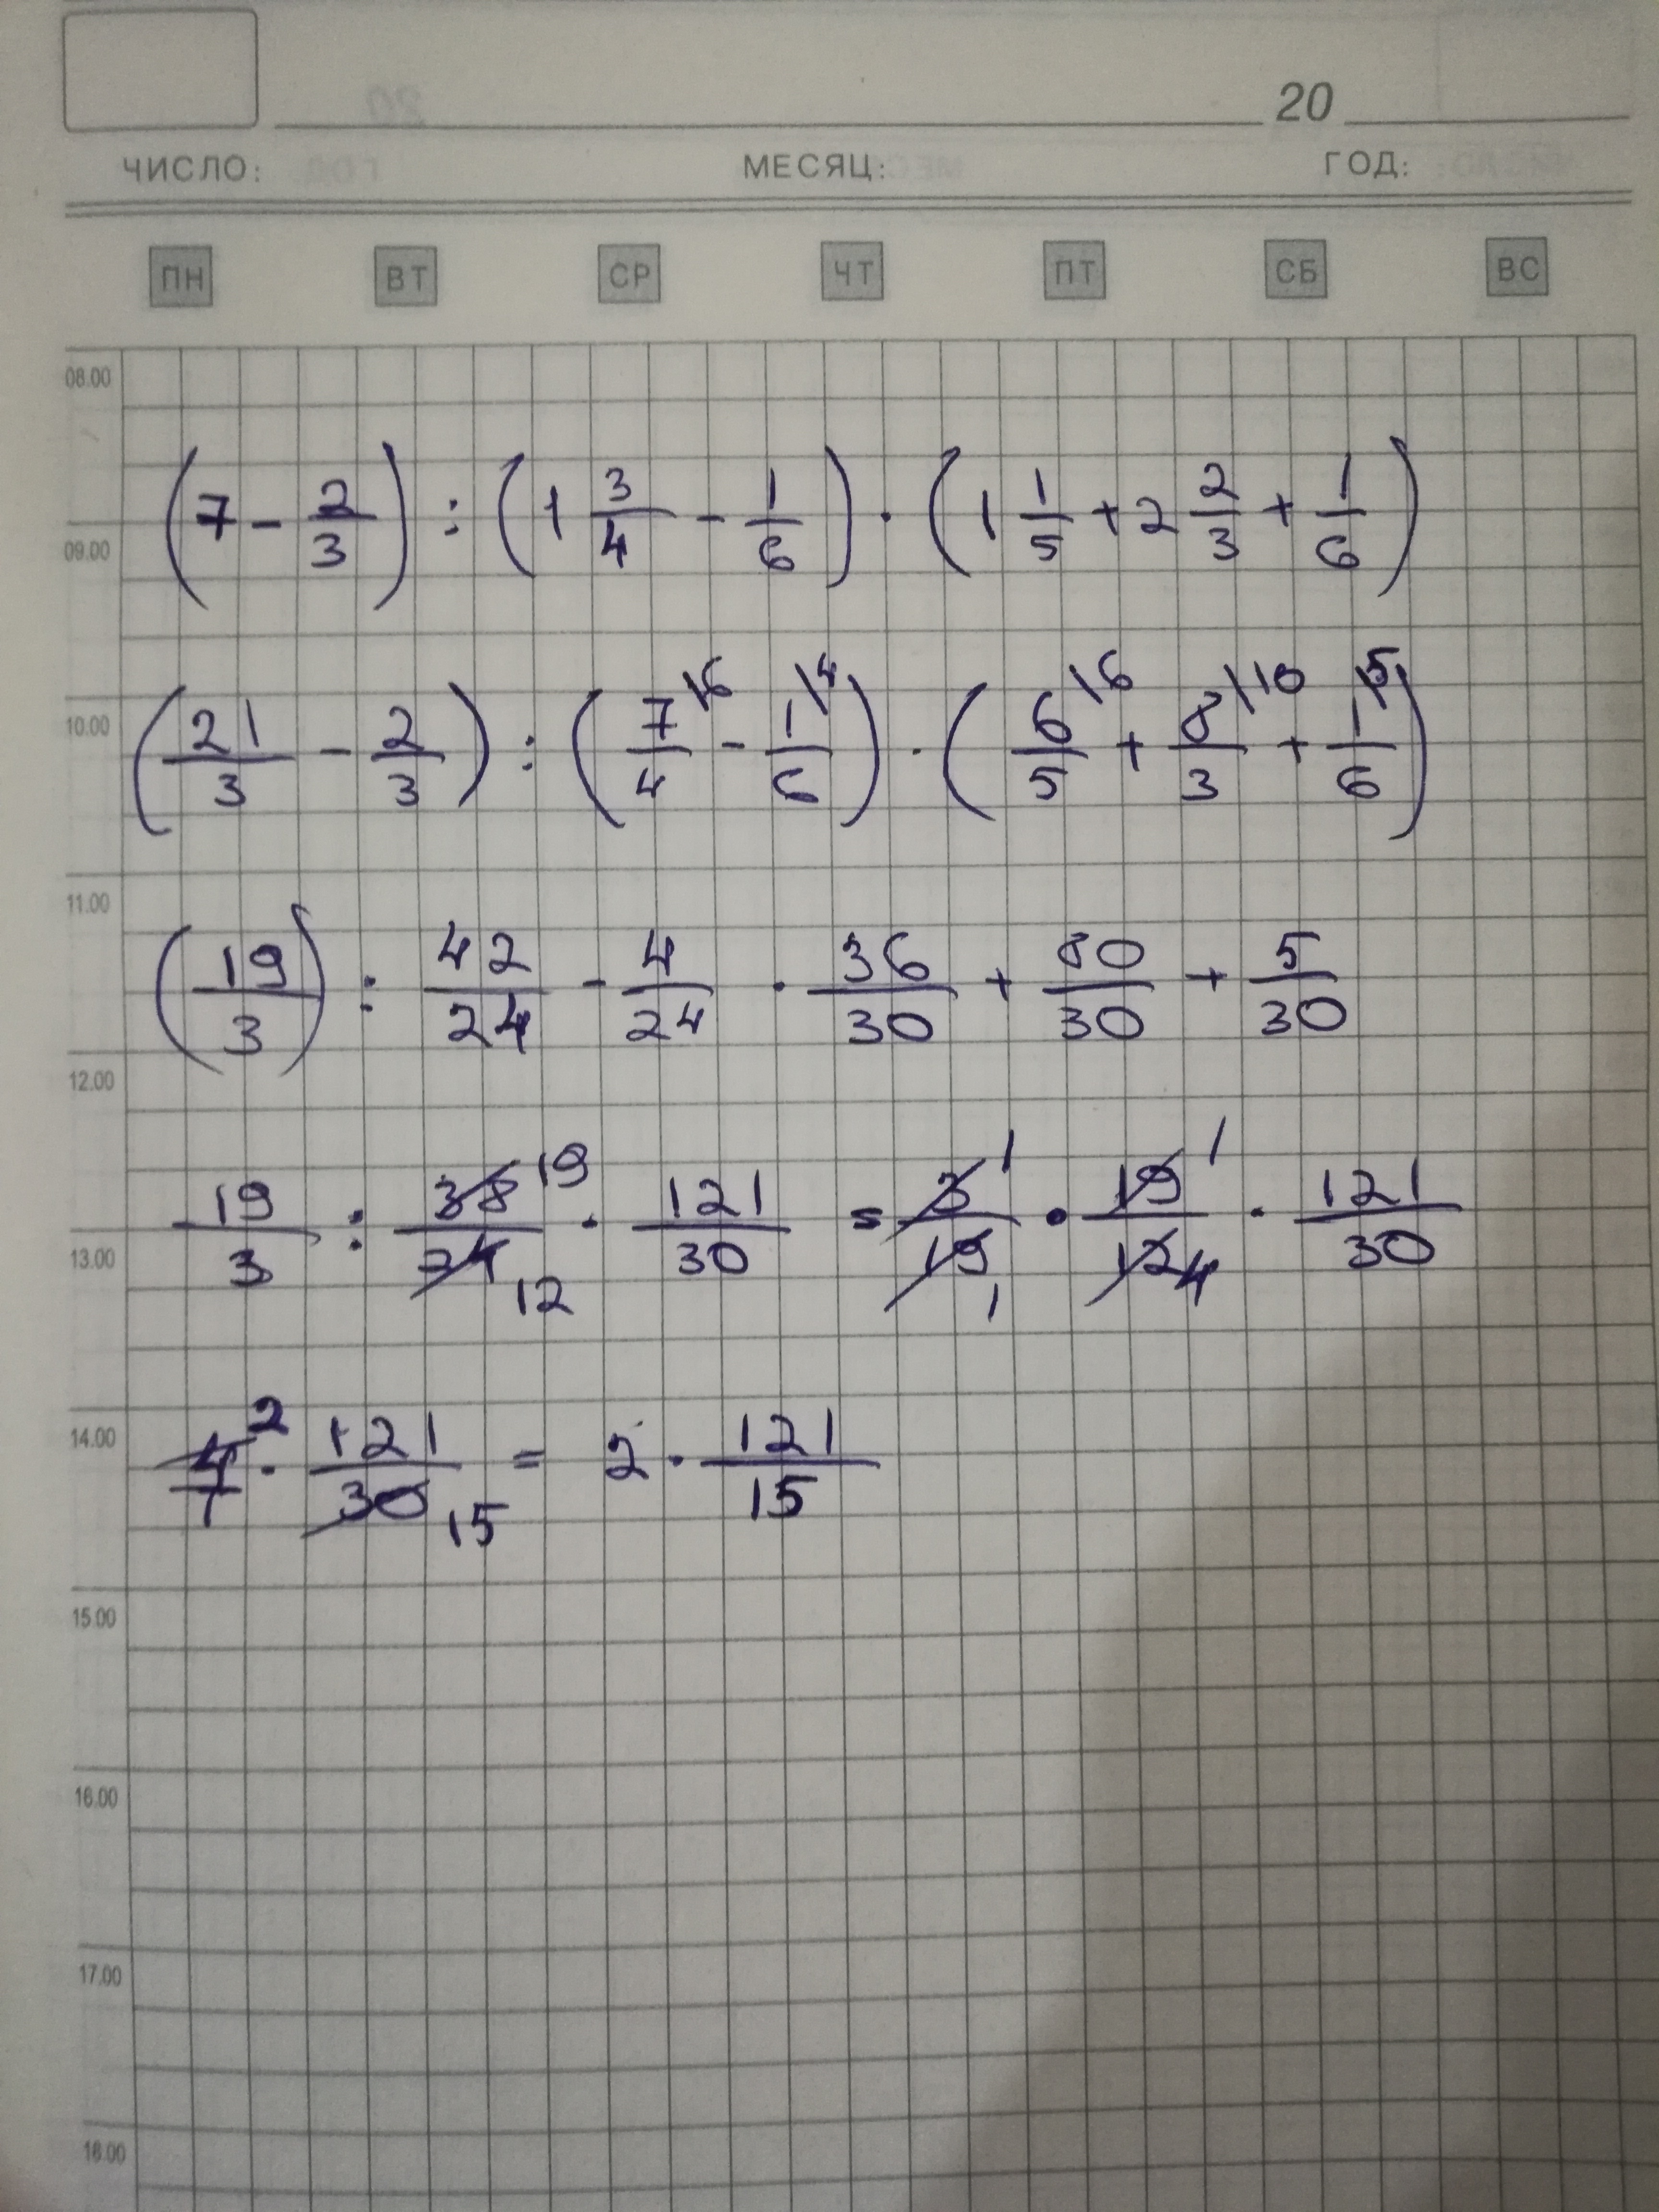 20
ЧИСЛО: МЕСЯЦ: ГОД:
ПН ВТ СР ЧТ ПТ СБ ВС
08.00
(7 - 2/3) : (1 3/4 - 1/6) · (1 1/5 + 2 2/3 + 1/6)
09.00
(21/3 - 2/3) : (7\6/4 - 1\4/6) · (6\6/5 + 8\10/3 + 1\5/6)
10.00
11.00
(19/3) : 42/24 - 4/24 · 36/30 + 80/30 + 5/30
12.00
19/3 : 38 19/24 12 · 121/30 = 3 1/19 1 · 19 1/12 4 · 121/30
13.00
14.00
4 2/1 · 121/30 15 = 2 · 121/15
15.00
16.00
17.00
18.00